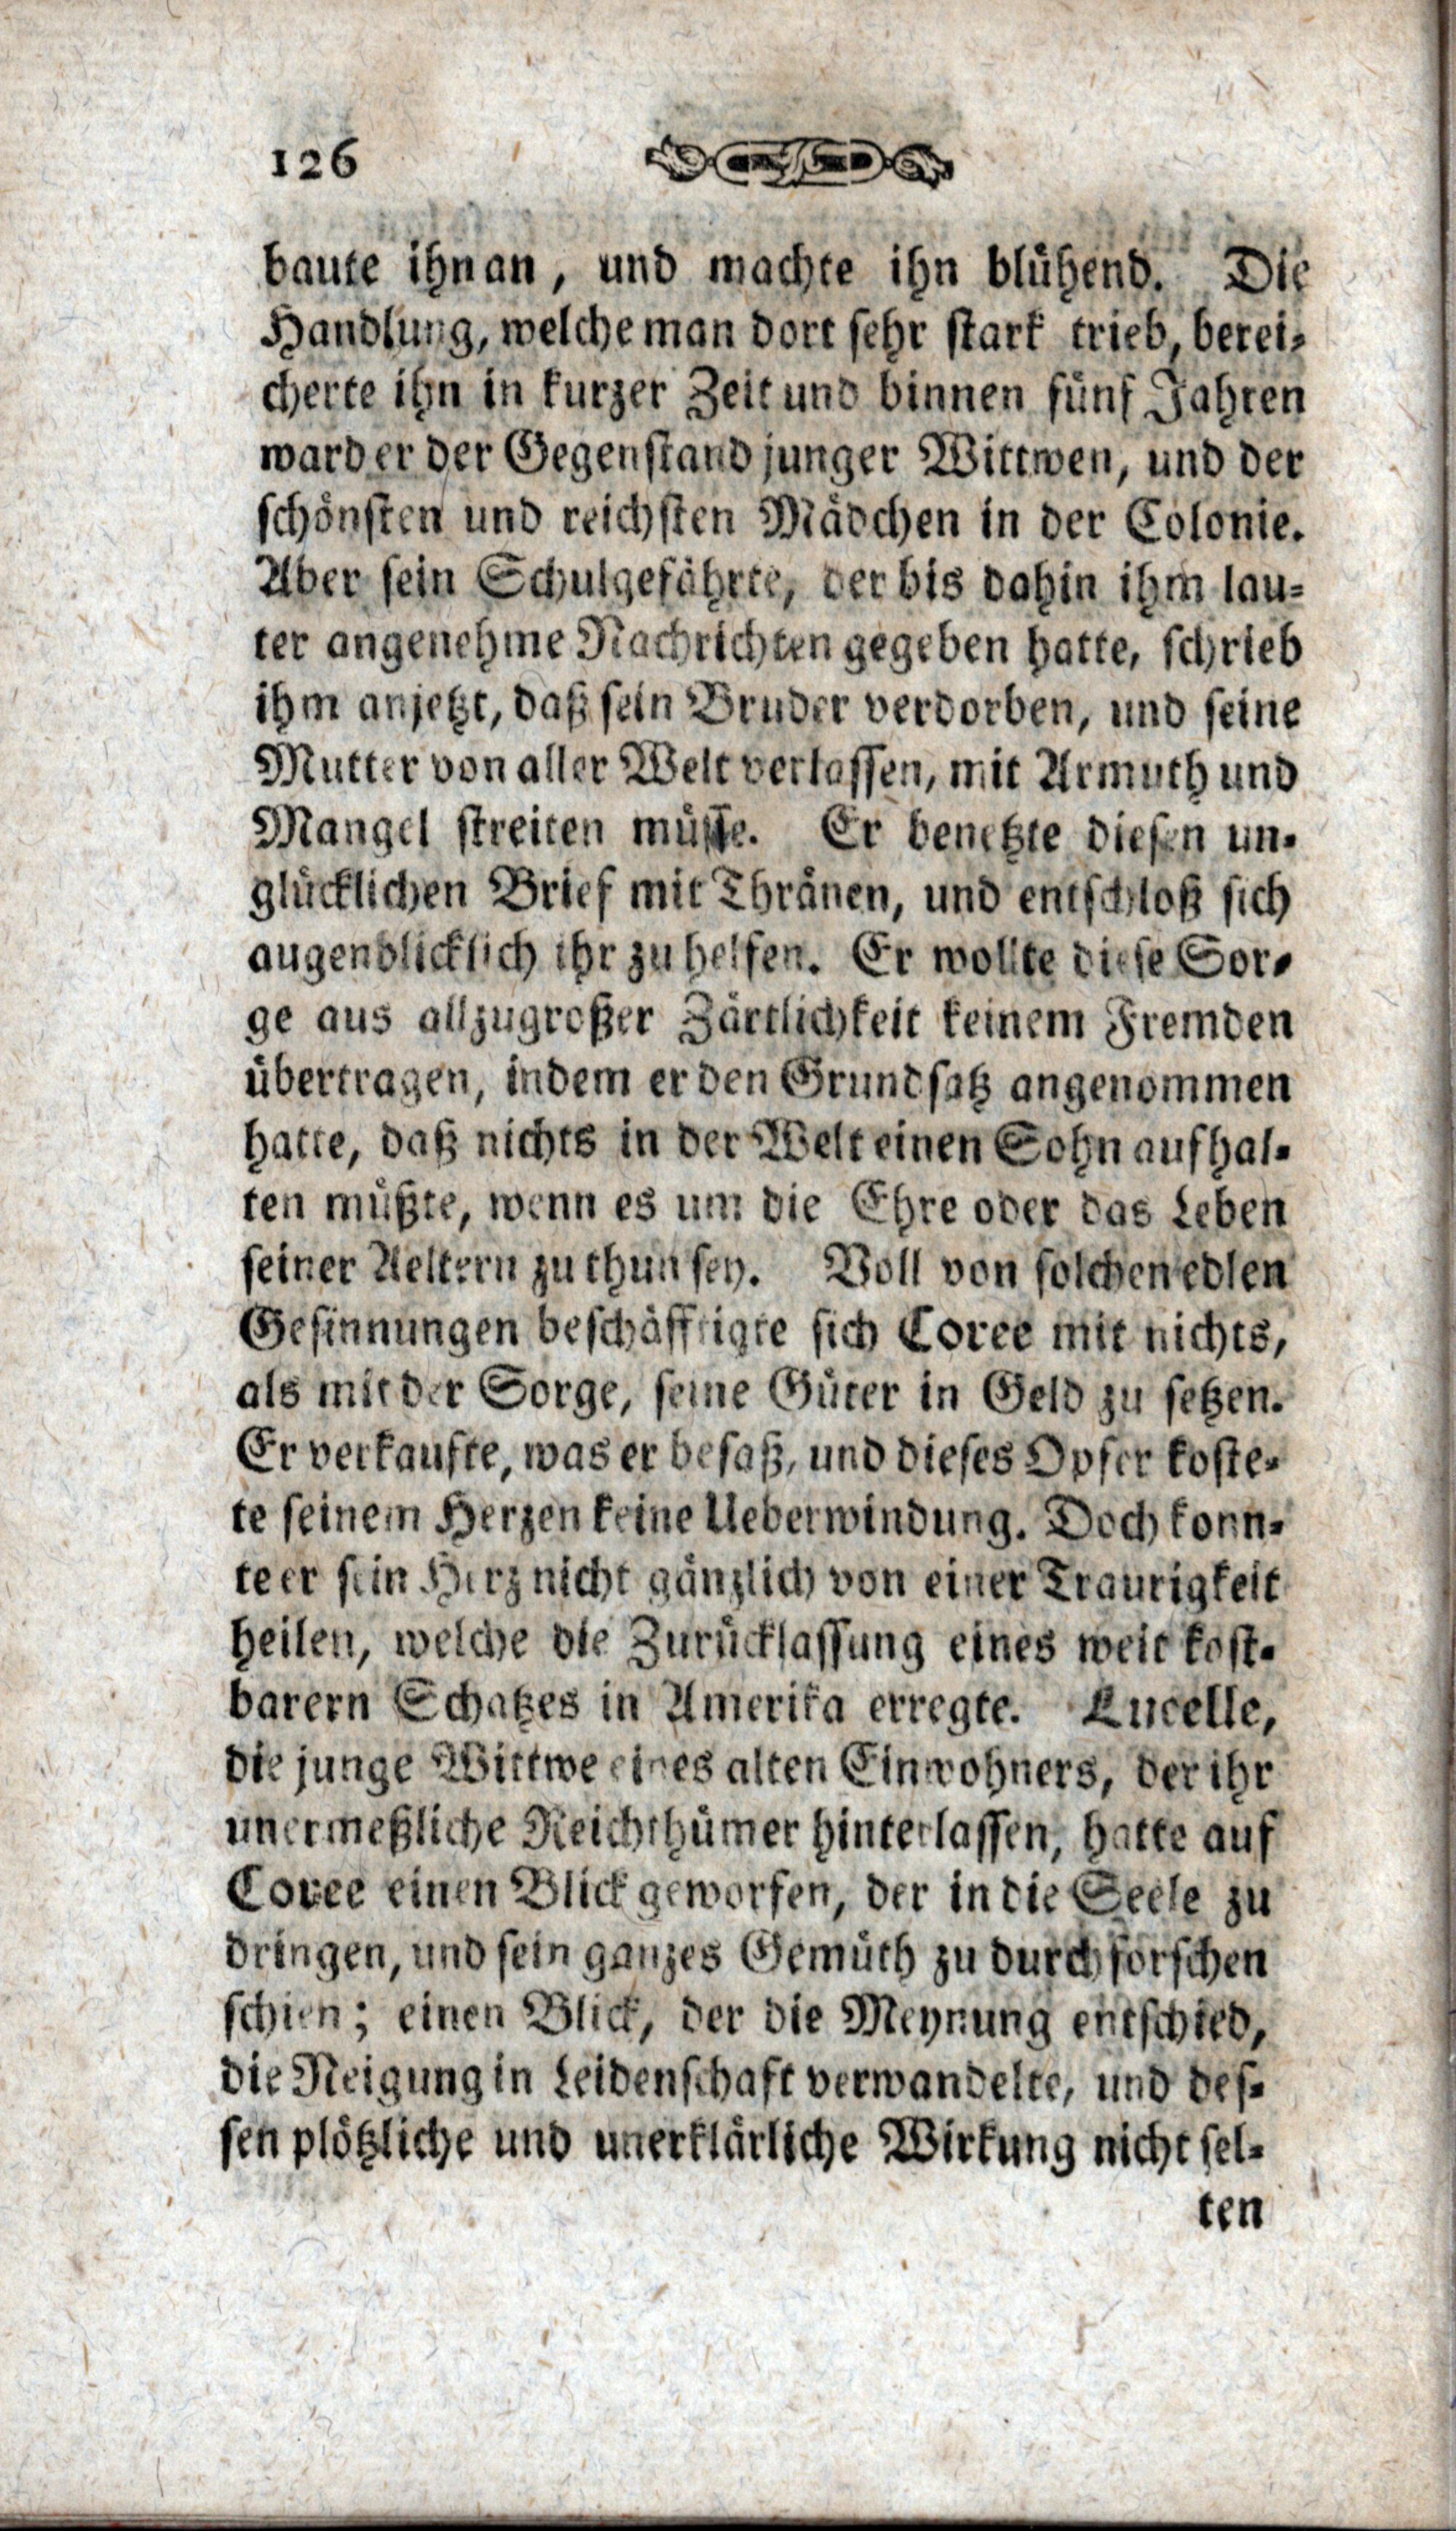 126
baute ihn an, und machte ihn blühend. Die
Handlung, welche man dort sehr stark trieb, berei-
cherte ihn in kurzer Zeit und binnen fünf Jahren
ward er der Gegenstand junger Wittwen, und der
schönsten und reichsten Mädchen in der Colonie.
Aber sein Schulgefährte, der bis dahin ihm lau-
ter angenehme Nachrichten gegeben hatte, schrieb
ihm anjetzt, daß sein Bruder verdorben, und seine
Mutter von aller Welt verlassen, mit Armuth und
Mangel streiten müsse. Er benetzte diesen un-
glücklichen Brief mit Thränen, und entschloß sich
augenblicklich ihr zu helfen. Er wollte diese Sor-
ge aus allzugroßer Zärtlichkeit keinem Fremden
übertragen, indem er den Grundsatz angenommen
hatte, daß nichts in der Welt einen Sohn aufhal-
ten müßte, wenn es um die Ehre oder das Leben
seiner Aeltern zu thun sey. Voll von solchen edlen
Gesinnungen beschäfftigte sich Coree mit nichts,
als mit der Sorge, seine Güter in Geld zu setzen.
Er verkaufte, was er besaß, und dieses Opfer koste-
te seinem Herzen keine Ueberwindung. Doch konn-
te er sein Herz nicht gänzlich von einer Traurigkeit
heilen, welche die Zurücklassung eines weit kost-
barern Schatzes in Amerika erregte. Lucelle,
die junge Wittwe eines alten Einwohners, der ihr
unermeßliche Reichthümer hinterlassen, hatte auf
Coree einen Blick geworfen, der in die Seele zu
dringen, und sein ganzes Gemüth zu durchforschen
schien; einen Blick, der die Meynung entschied,
die Neigung in Leidenschaft verwandelte, und des-
sen plötzliche und unerklärliche Wirkung nicht sel-
ten